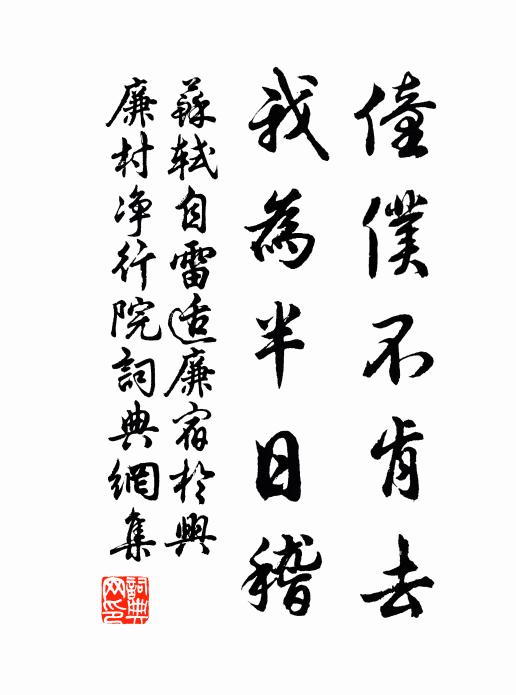 僮僕不肯去
我為半日稽
蘇軾自雷适廉宿於興
廉村净行院詞典網集
詞典网印